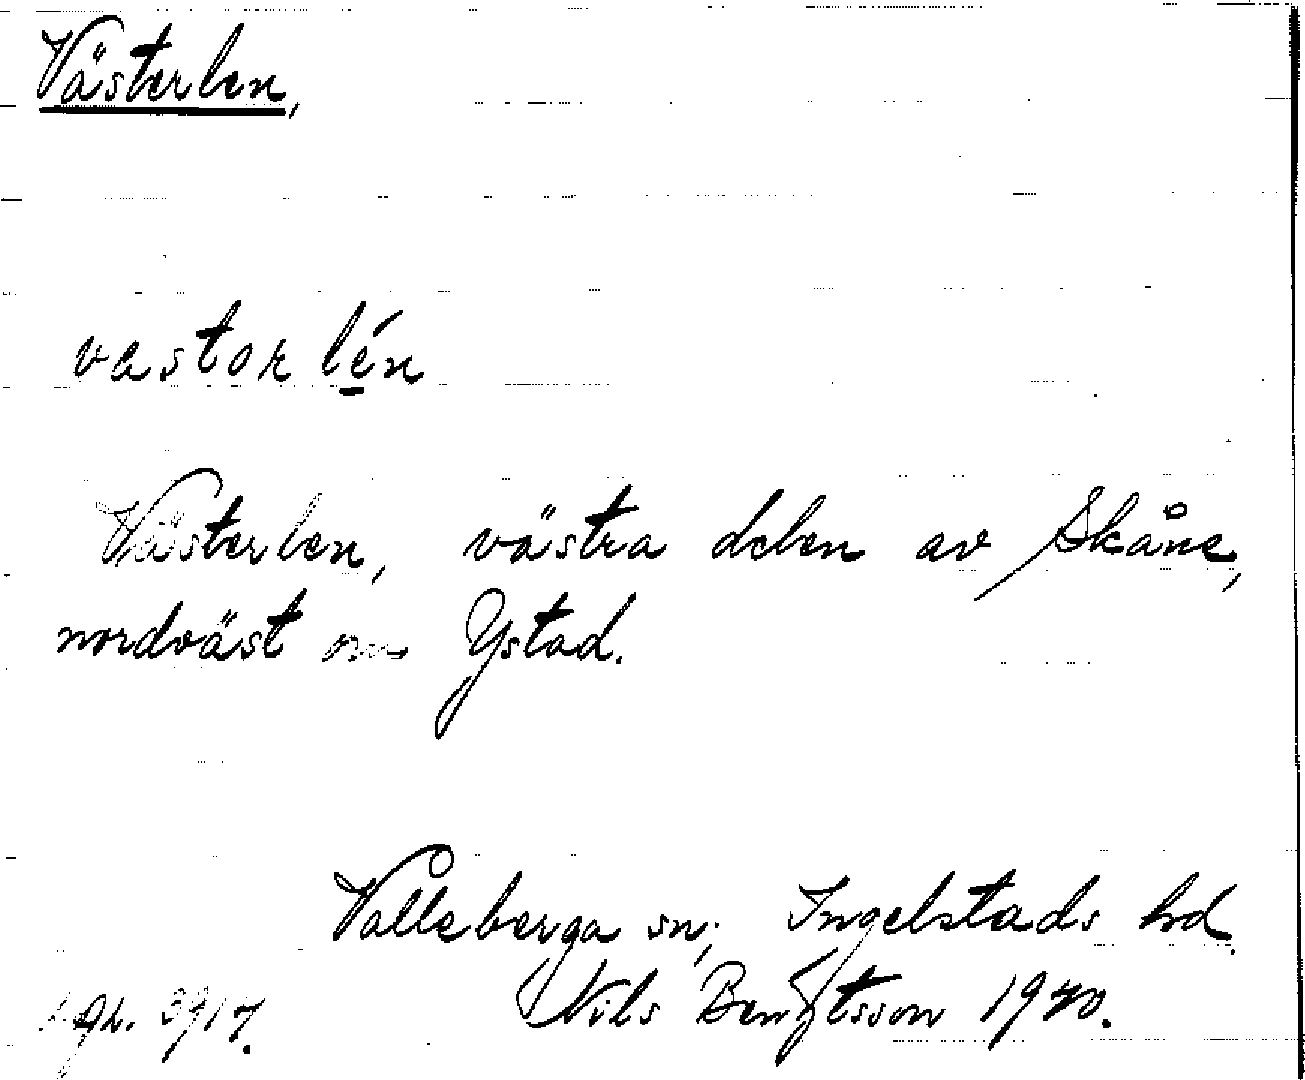 Västerlen,
vastor lén
Västerlen, västra delen av Skåne,
nordväst om Ystad.
Valleberga sn, Ingelstads hd.
Nils Bengtsson 1940.
3917.